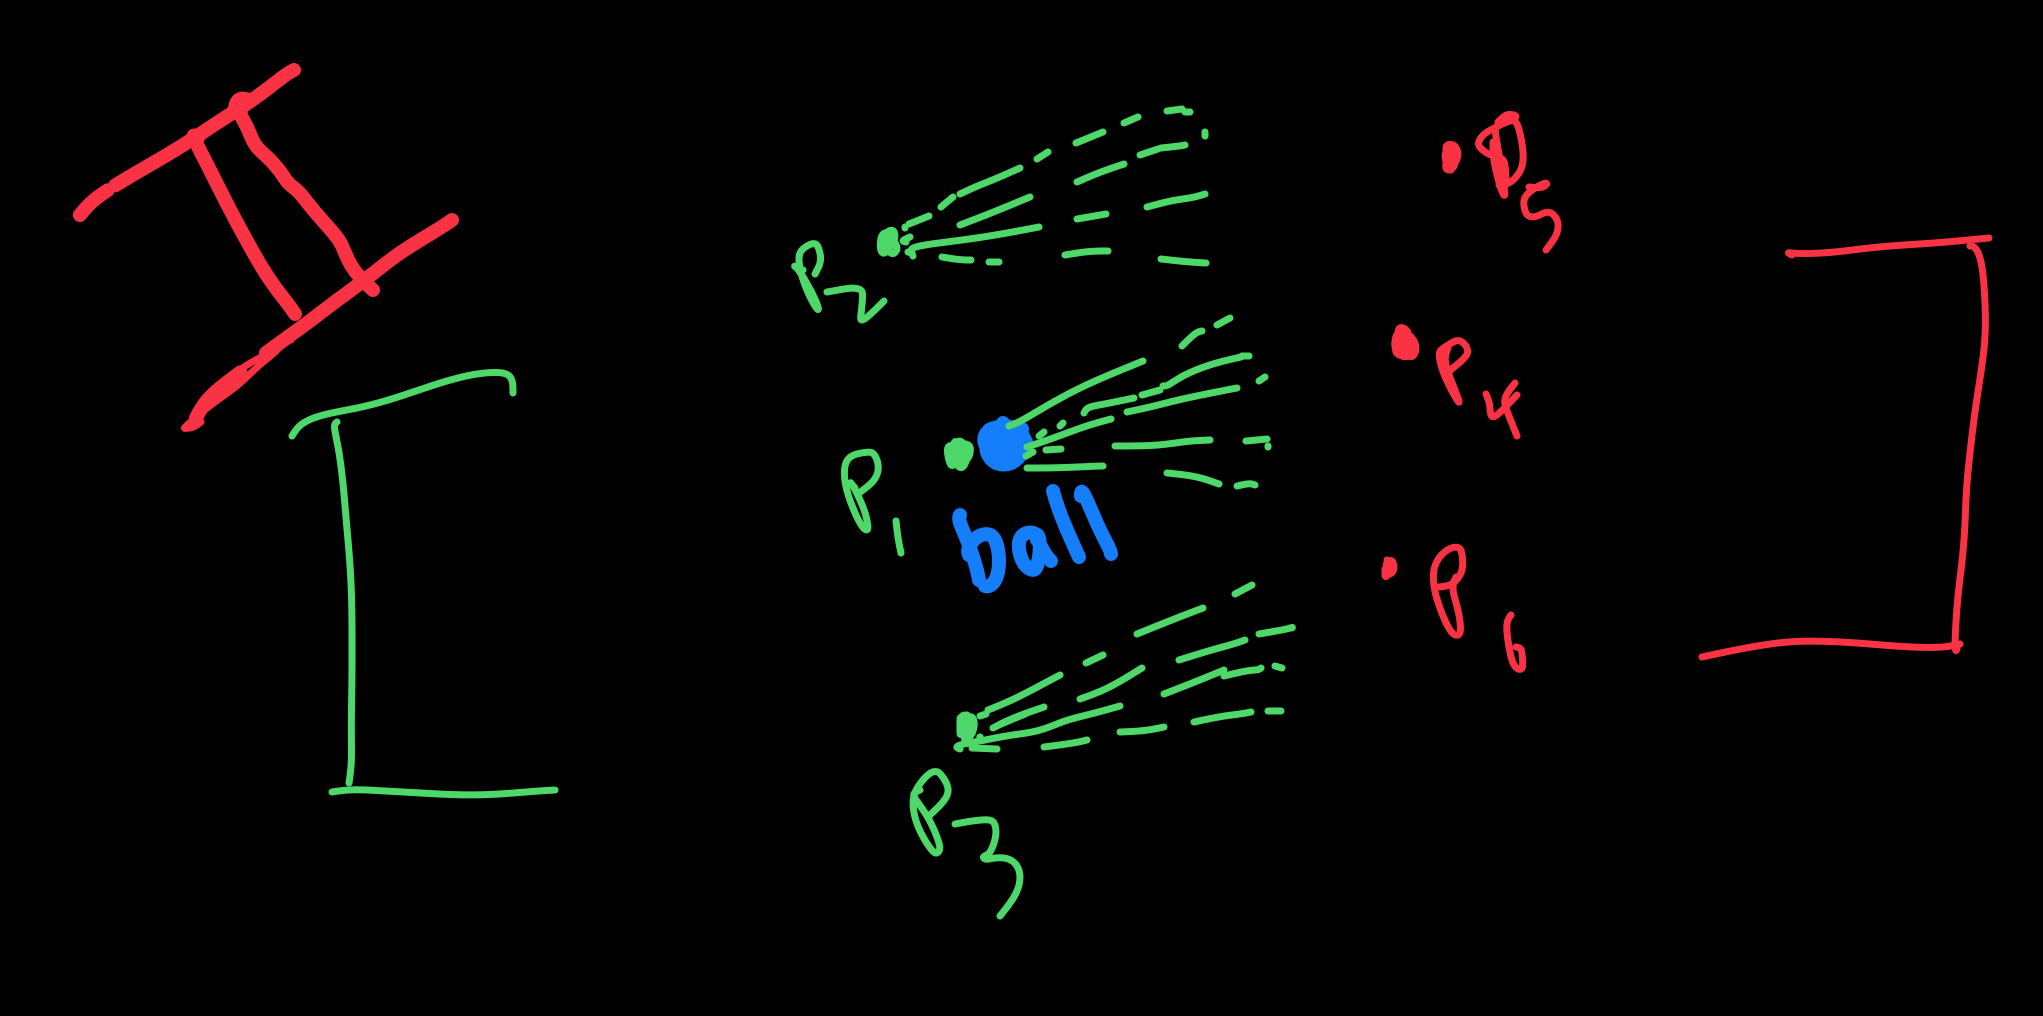 II
P2
P5
P4
P1
ball
P6
P3